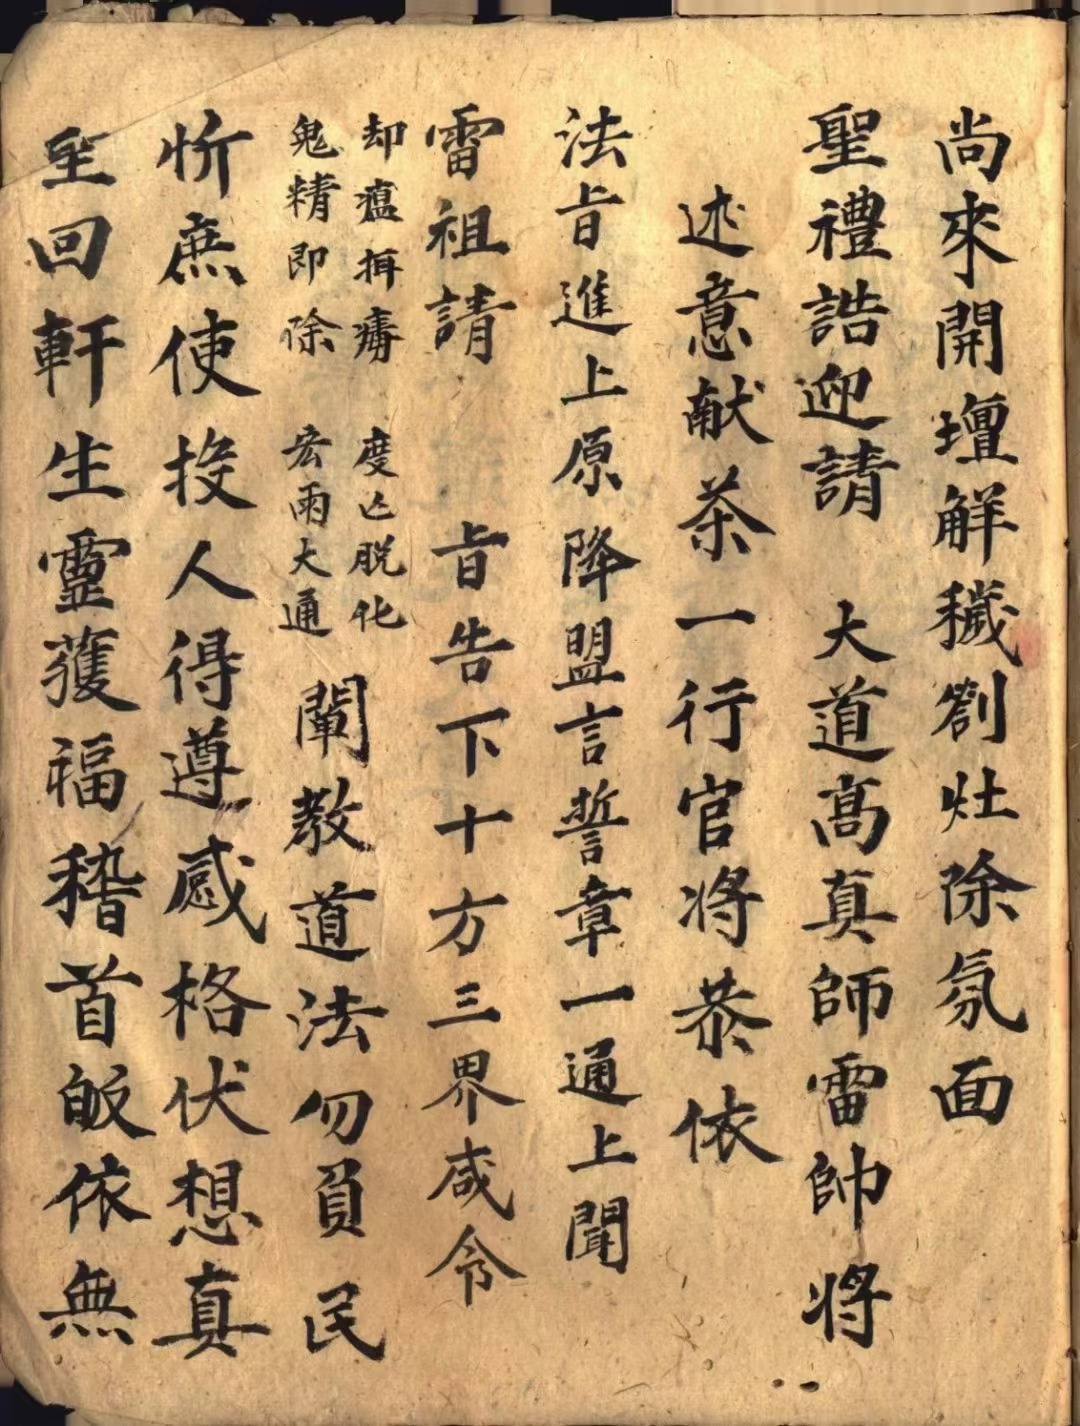 尚來開壇解穢劄灶除氛面
聖禮誥迎請 大道高真師雷帥將
述意献茶一行官将恭依
法旨進上原降盟言誓章一通上聞
雷祖請 旨告下十方三界咸令
却瘟揖癆 度亾脱化
鬼精即除 宏雨大通 闡教道法勿負民
忻庶使投人得遵感格伏想真
至回軒生靈獲福稽首皈依無